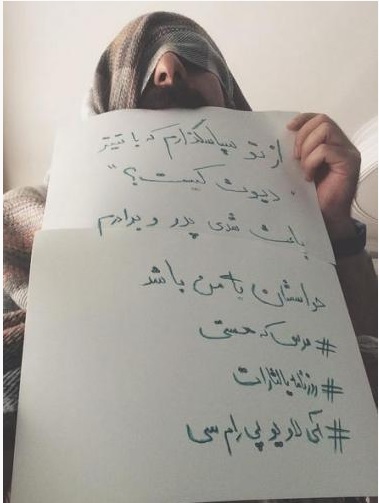 از تو سپاسگذارم که با تیتر
" دیوث کیست؟"
باعث شدی پدر و برادرم
حواسشان به من باشد
#مرسی که هستی
#روزنامه یالثارات
#آی لاو یو پی اِم سی